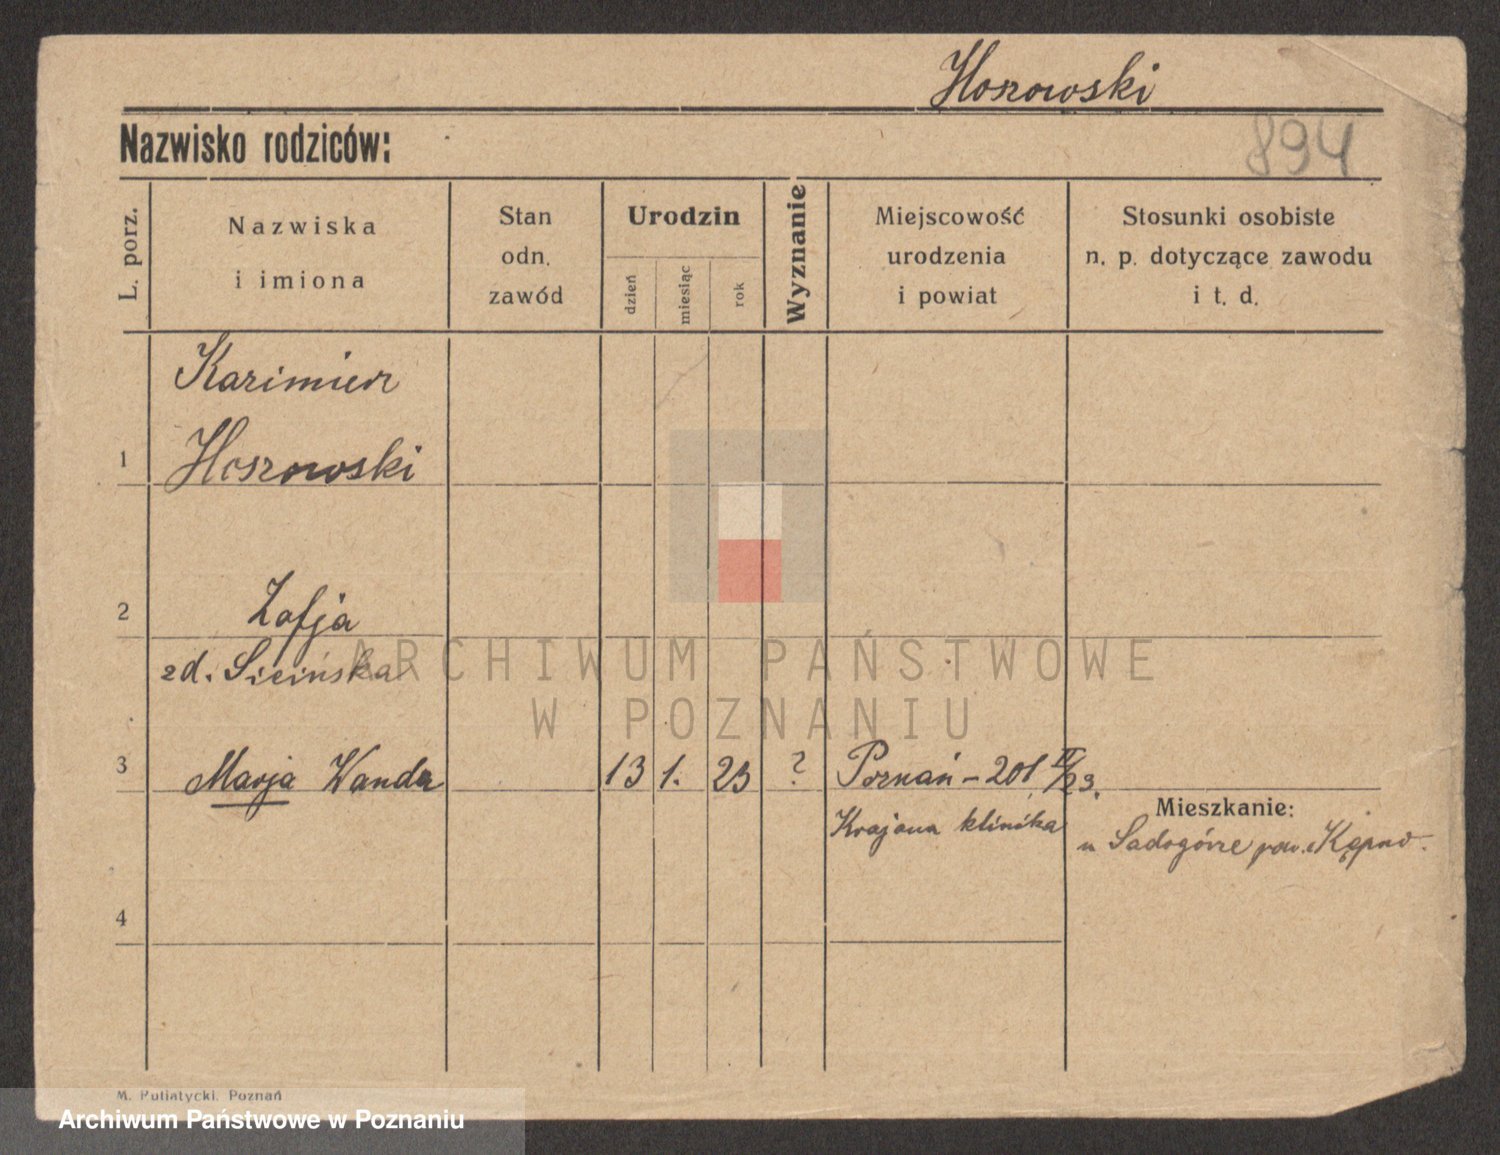 Hoszowski
Nazwisko rodziców:
894
L. porz.
Nazwiska
i imiona
Stan
odn.
zawód
Urodzin
dzień
miesiąc
rok
Wyznanie
Miejscowość
urodzenia
i powiat
Stosunki osobiste
n. p. dotyczące zawodu
i t. d.
Kazimierz
1 Hoszowski
2 Zofja
zd. Sicińska
3 Marja Wanda 13 1. 23 ? Poznań - 201 II/23.
Krajowa klinika
Mieszkanie:
w Sadogórze pow. Kępno.
4
ARCHIWUM PAŃSTWOWE
W POZNANIU
M. Putiatycki, Poznań
Archiwum Państwowe w Poznaniu